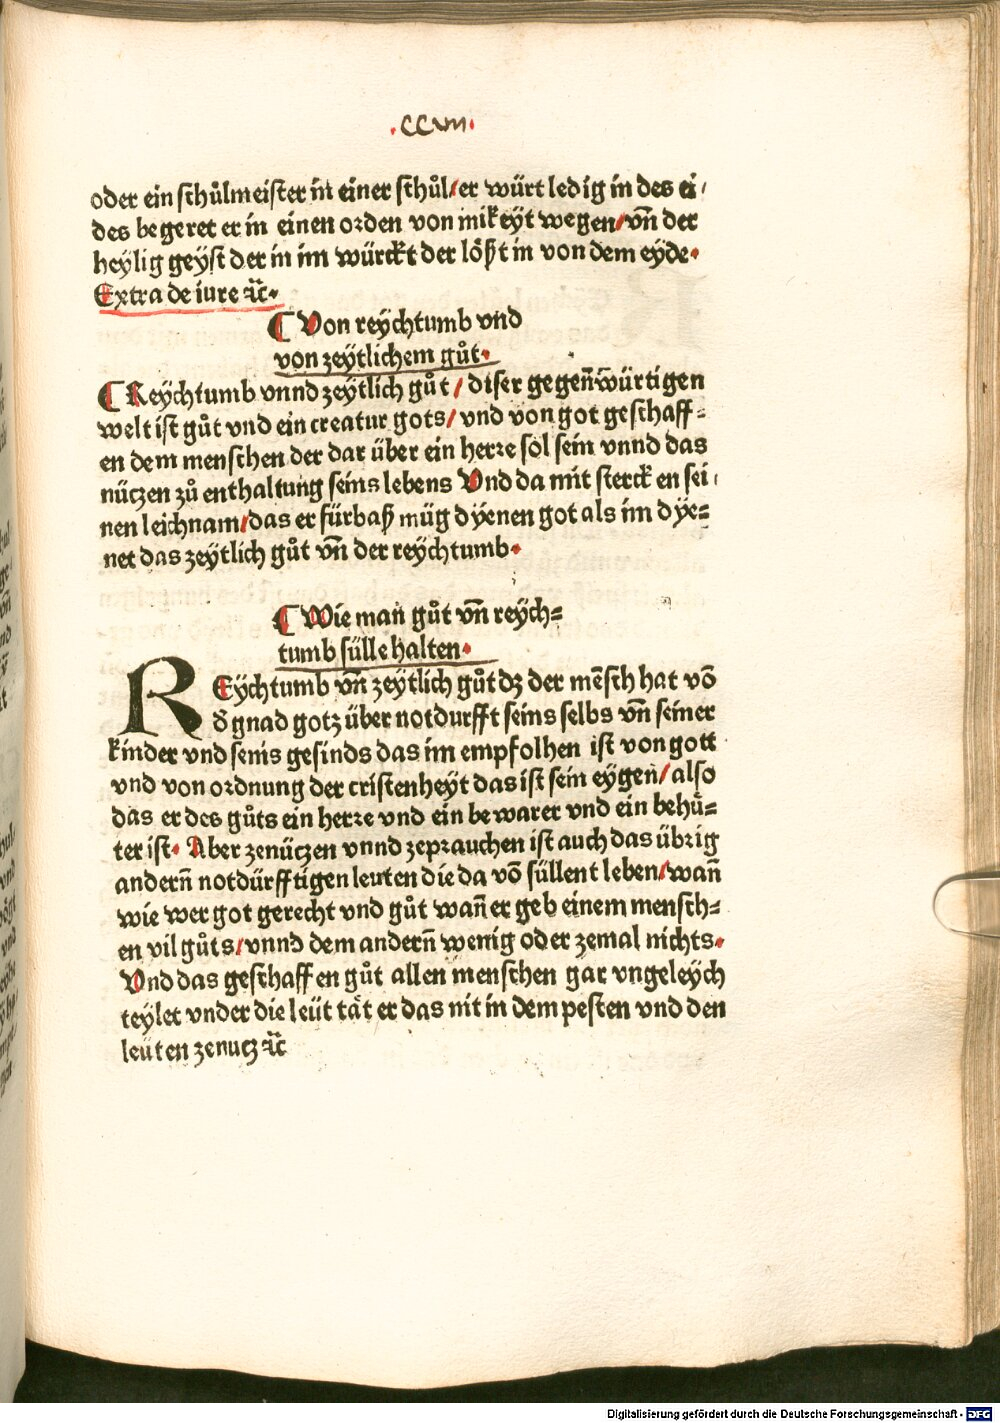 ·ccvııı·
oder ein schůlmeister in einer schůl/er würt ledig in des ei/
des begeret er in einen orden von mikeÿt wegen/vn̄ der
heÿlig geÿst der in im würckt der lößt in von dem eÿde·
Extra de iure ⁊c̄·
¶ Von reÿchtumb vnd
von zeÿtlichem gůt·
¶ Reÿchtumb vnnd zeÿtlich gůt/ diser gegen̄würtigen
welt ist gůt vnd ein creatur gots/ vnd von got geschaff⸗
en dem menschen der dar über ein herꝛe sol sein vnnd das
nüczen zů enthaltung seins lebens Vnd da mit stercken sei/
nen leichnam/das er fürbaß müg dÿenen got als im dÿe⸗
net das zeÿtlich gůt vn̄ der reÿchtumb·
¶ Wie man gůt vn̄ reÿch⸗
tumb sülle halten·
REÿchtumb vn̄ zeÿtlich gůt dz der mēsch hat vō
d̄ gnad gotz über notdurfft seins selbs vn̄ seiner
kinder vnd seins gesinds das im empfolhen ist von gott
vnd von oꝛdnung der cristenheÿt das ist sein eÿgen/also
das er des gůts ein herꝛe vnd ein bewarer vnd ein behü⸗
ter ist· Aber zenüczen vnnd zepꝛauchen ist auch das übꝛig
andern̄ notdürfftigen leuten die da vō süllent leben/wan̄
wie wer got gerecht vnd gůt wan̄ er geb einem mensch⸗
en vil gůts/vnnd dem andern̄ wenig oder zemal nichts·
Vnd das geschaffen gůt allen menschen gar vngeleÿch
teÿlet vnder die leüt tät er das nit in dem pesten vnd den
leüten zenucz ⁊c̄
Digitalisierung gefördert durch die Deutsche Forschungsgemeinschaft - DFG